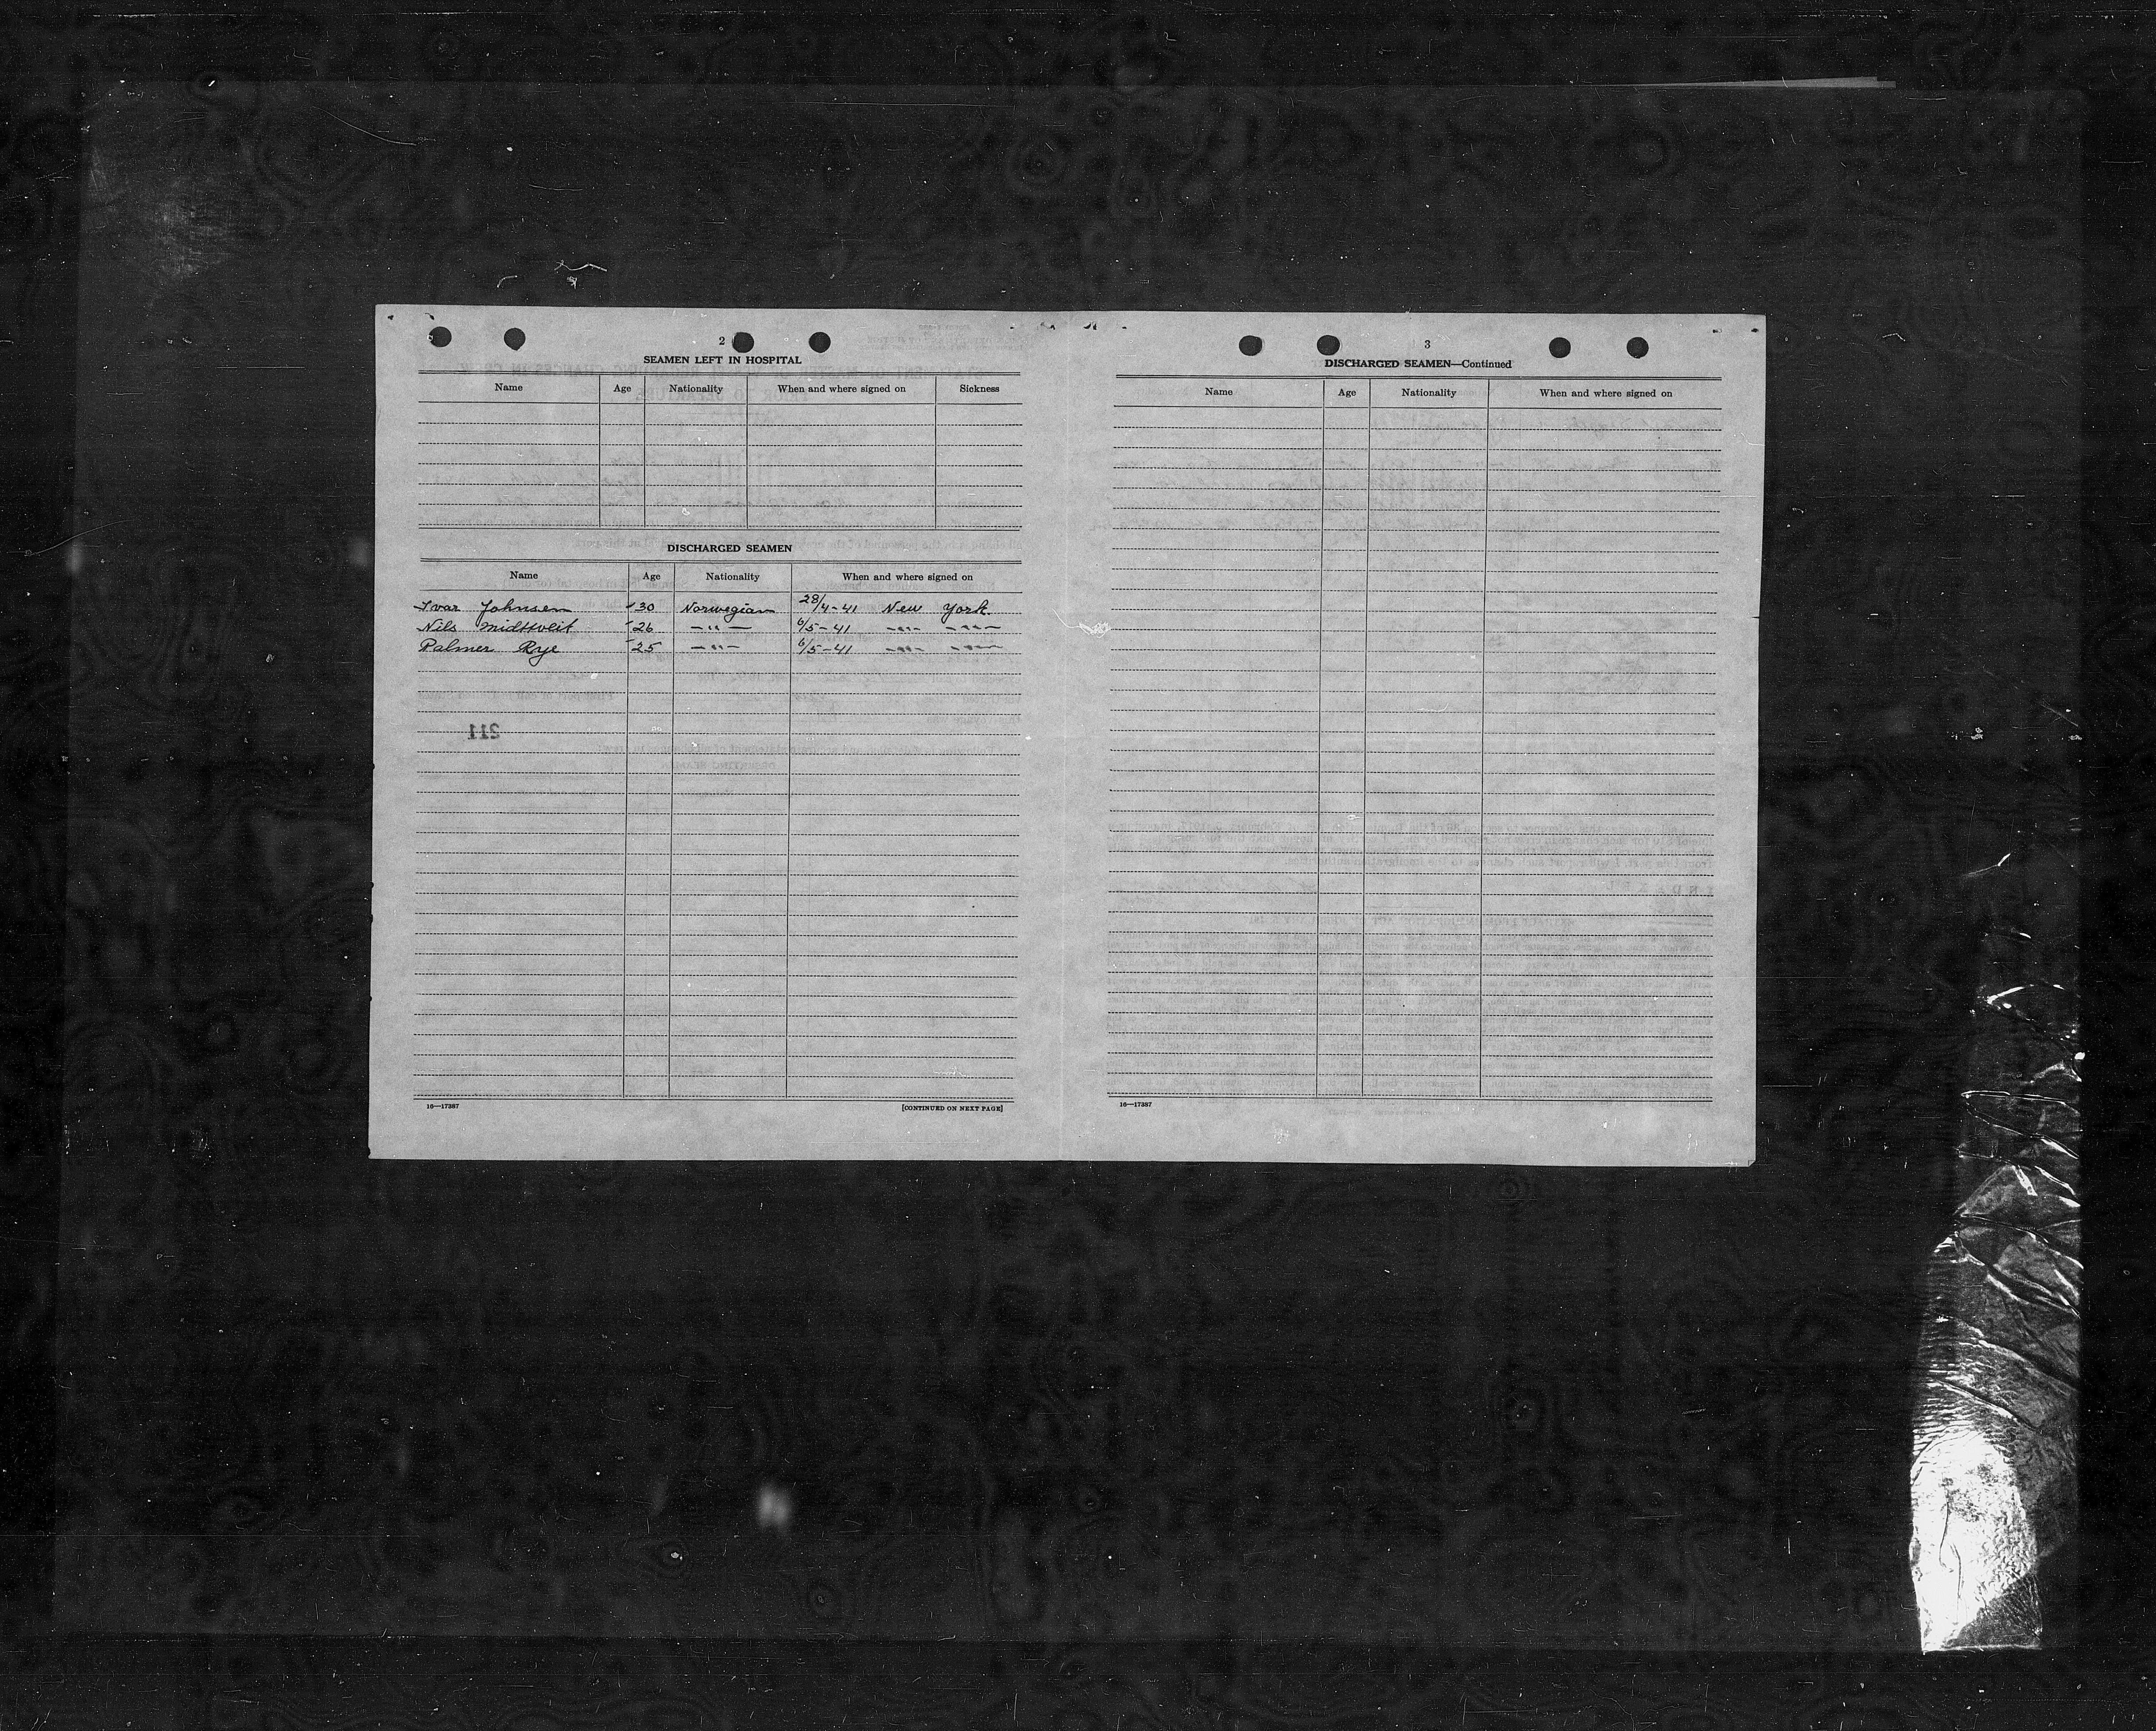 2
SEAMEN LEFT IN HOSPITAL
Name Age Nationality When and where signed on Sickness
DISCHARGED SEAMEN
Name Age Nationality When and where signed on
Ivar Johnsen 30 Norwegian 28/4-41 New York.
Nils Midttveit 26 —"— 6/5-41 —"— —"—
Palmer Rye 25 —"— 6/5-41 —"— —"—
211
16—17387 [CONTINUED ON NEXT PAGE]
3
DISCHARGED SEAMEN—Continued
Name Age Nationality When and where signed on
16—17387